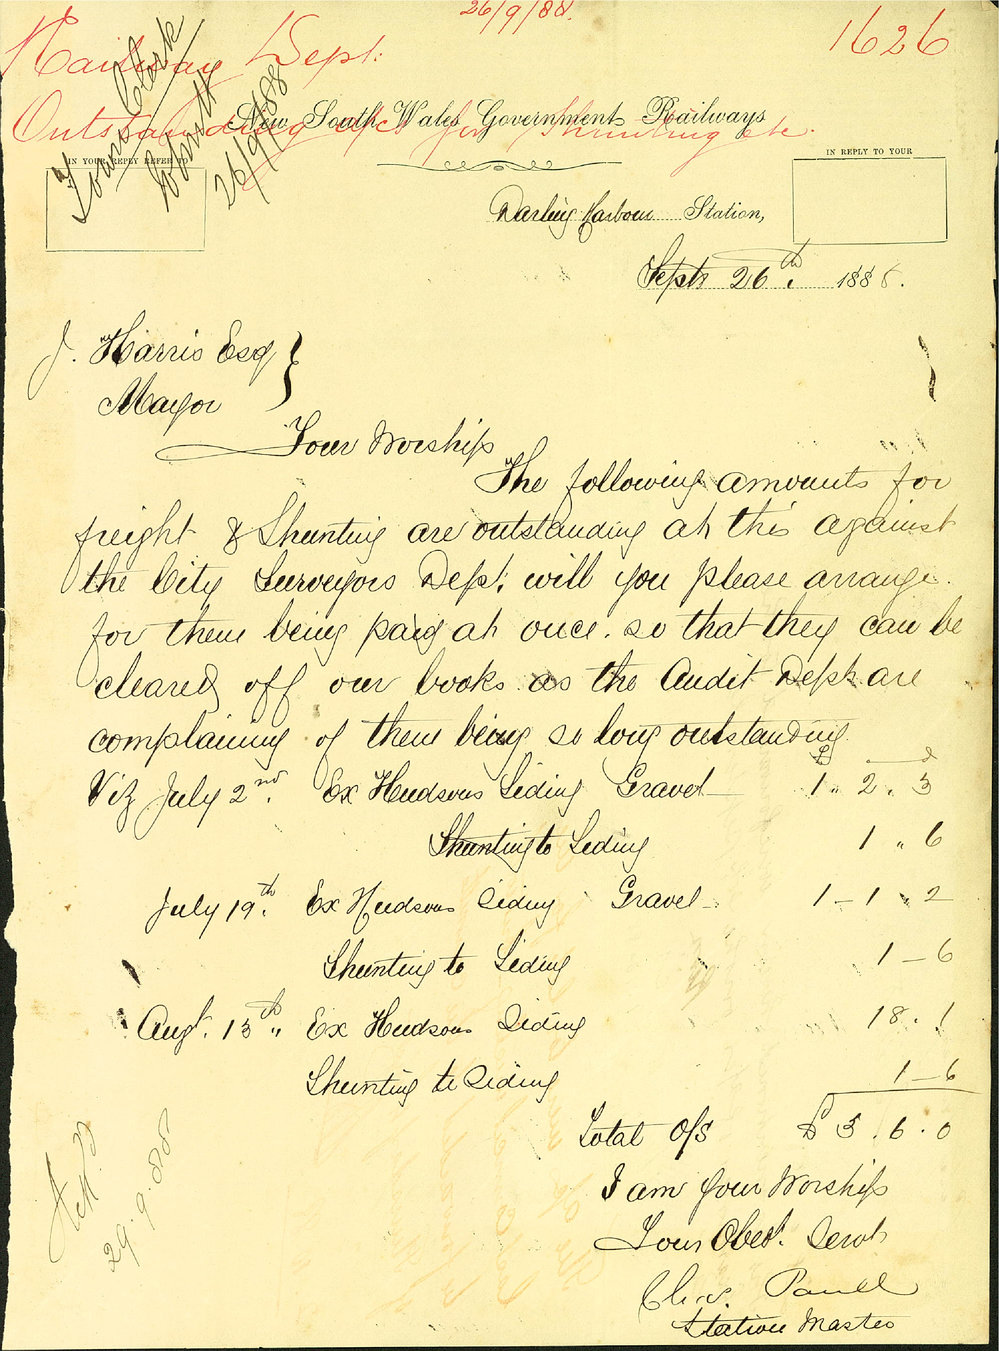 26/9/88.
1626
Railway Dept:
Outstanding a/c for Shunting etc.
Town Clerk
26/9/88
New South Wales Government Railways
IN YOUR REPLY REFER TO
IN REPLY TO YOUR
Darling Harbour Station,
Septr 26th. 1888.
J. Harris Esq
Mayor
Your Worship
The following amounts for
freight & Shunting are outstanding at this against
the City Surveyors Dept. will you please arrange
for them being paid at once. so that they can be
cleared off our books as the Audit Dept are
complaining of them being so long outstanding.
£ d
Viz July 2nd. Ex Hudsons Siding Gravel 1 " 2 " 3
Shunting to Siding 1 " 6
July 19th. Ex Hudsons Siding Gravel 1 – 1 " 2
Shunting to Siding 1 – 6
Augt. 13th " Ex Hudsons Siding 18 . 1
Shunting to Siding 1 – 6
Total O/S £ 3 . 6 . 0
I am Your Worship
Your Obedt. Servt
Chas. Powell
Station Master
29.9.88